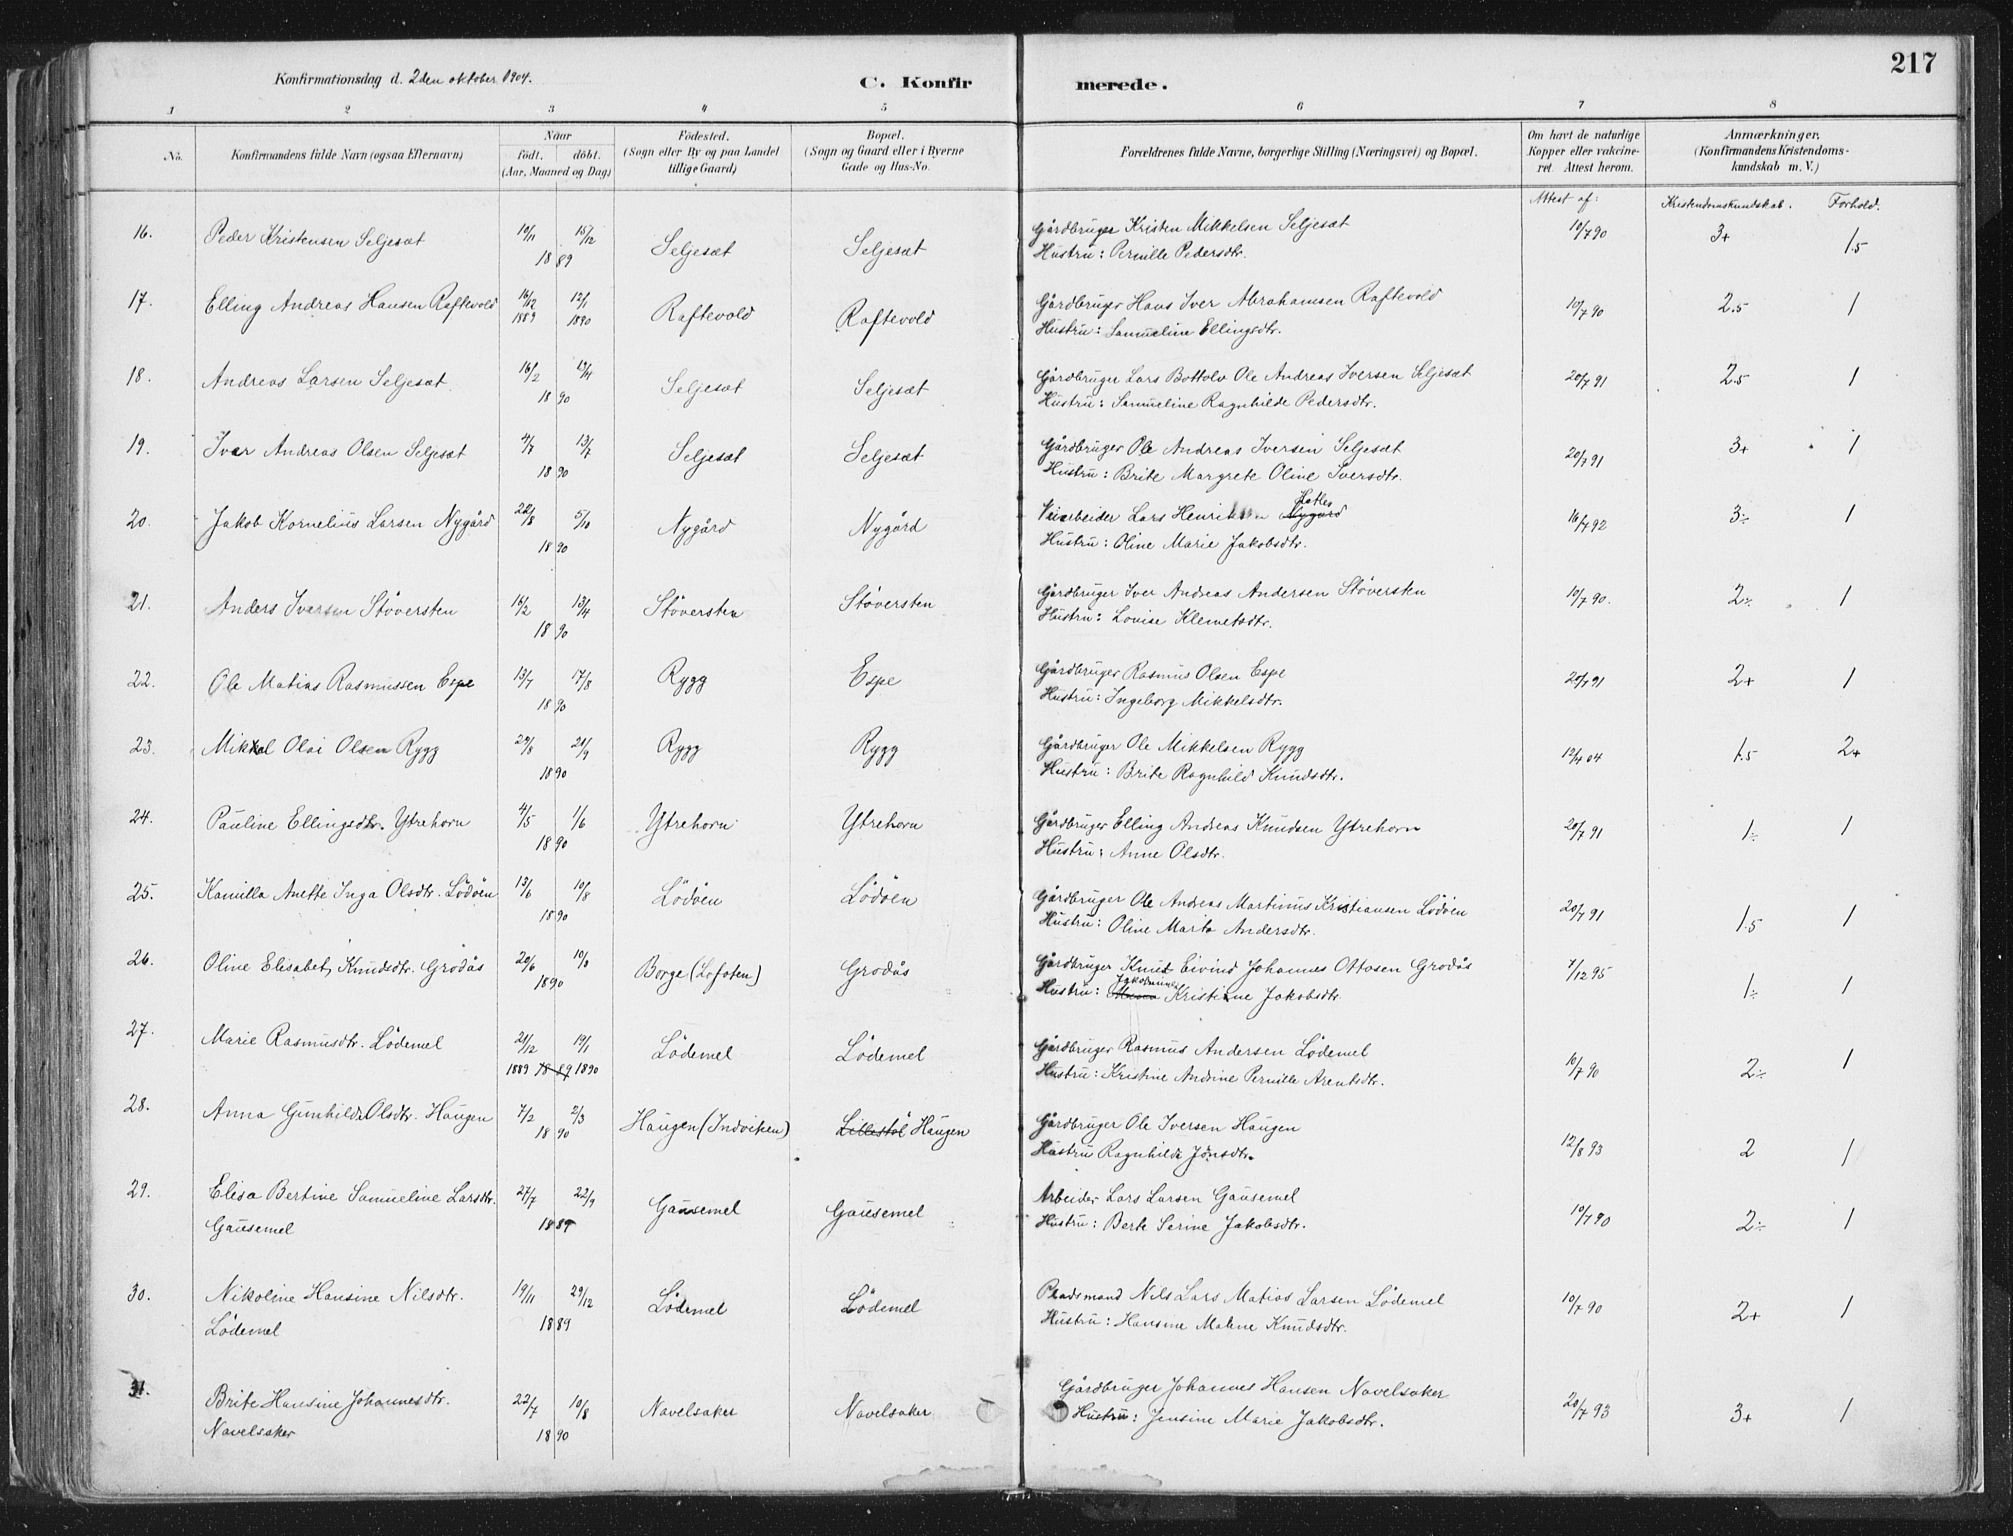 217
Konfirmationsdag d. 2den oktober 1904.
C. Konfir merede.
1 2 3 4 5 6 7 8
No. Konfirmandens fulde Navn (ogsaa Efternavn) Naar födt. döbt. (Aar, Maaned og Dag) Födested. (Sogn eller By og paa Landet tillige Gaard) Bopæl. (Sogn og Gaard eller i Byerne Gade og Hus-No. Forældrenes fulde Navne, borgerlige Stilling (Næringsvei) og Bopæl. Om havt de naturlige Kopper eller vakcineret. Attest herom. Anmærkninger. (Konfirmandens Kristendomskundskab m. V.)
Attest af: Kristendomskundskab. Forhold.
16. Peder Kristensen Seljesæt 10/11 15/12 1889 Seljesæt Seljesæt Gårdbruger Kristen Mikkelsen Seljesæt 10/7 90 3+ 1.5
Hustru: Pernille Pedersdtr.
17. Elling Andreas Hansen Raftevold 16/12 1889 12/1 1890 Raftevold Raftevold Gårdbruger Hans Iver Abrahamsen Raftevold 10/7 90 2.5 1
Hustru: Samueline Ellingsdtr.
18. Andreas Larsen Seljesæt 16/2 /4 1890 Seljesæt Seljesæt Gårdbruger Lars Bottolv Ole Andreas Iversen Seljesæt 20/7 91 2.5 1
Hustru: Samueline Ragnhilde Pedersdtr.
19. Iver Andreas Olsen Seljesæt 4/7 13/7 1890 Seljesæt Seljesæt Gårdbruger Ole Andreas Iversen Seljesæt 20/7 91 3+ 1
Hustru: Brite Margrete Oline Iversdtr.
20. Jakob Kornelius Larsen Nygård 22/8 5/10 1890 Nygård Nygård Veiarbeider Lars Henriksen Nygård 16/7 92 3÷ 1
Hustru: Oline Marie Jakobsdtr.
21. Anders Iversen Stöversten 16/2 13/4 1890 Stöversten Stöversten Gårdbruger Iver Andreas Andersen Stöversten 10/7 90. 2÷ 1
Hustru: Lovise Klemetsdtr.
22. Ole Matias Rasmussen Espe 13/7 17/8 1890 Rygg Espe Gårdbruger Rasmus Olsen Espe 20/7 91 2+ 1
Hustru: Ingeborg Mikkelsdtr.
23. Mikkel Olai Olsen Rygg /8 21/9 1890 Rygg Rygg Gårdbruger Ole Mikkelsen Rygg 12/4 04 1.5 2+
Hustru: Brite Ragnhild Knudsdtr.
24. Pauline Ellingsdtr. Ytrehorn 4/5 1/6 1890 Ytrehorn Ytrehorn Gårdbruger Elling Andreas Knudsen Ytrehorn 20/7 91 1÷ 1
Hustru: Anne Olsdtr.
25. Kamilla Anette Inga Olsdtr. Lödöen 13/6 10/8 1890 Lödöen Lödöen Gårdbruger Ole Andreas Martinus Kristiansen Lödöen 20/7 91 1.5 1
Hustru: Oline Marta Andersdtr.
26. Oline Elisabet Knudsdtr. Grodås 20/6 10/8 1890 Borge (Lofoten) Grodås Gårdbruger Knut Eivind Johannes Ottosen Grodås 7/12 95 1÷ 1
Hustru: Kristine Jakobsdtr.
27. Marie Rasmusdtr. Lödemel 21/12 19/1 1889 1889 1890 Lödemel Lödemel Gårdbruger Rasmus Andersen Lödemel 10/7 90 2÷ 1
Hustru: Kristine Andrine Pernille Arentsdtr.
28. Anna Gunhilde Olsdtr. Haugen 7/2 2/3 1890 Haugen (Indviken) Lillestöl Haugen Gårdbruger Ole Iversen Haugen 12/8 93 2 1
Hustru Ragnhilde Jönsdtr.
29. Elisa Bertine Samueline Larsdtr. 27/7 22/9 1889 Gausemel Gausemel Arbeider Lars Larsen Gausemel 10/7 90 2÷ 1
Gausemel Hustru: Berte Serine Jakobsdtr.
30. Nikoline Hansine Nilsdtr. 19/11 29/12 1889 Lödemel Lödemel Pladsmand Nils Lars Matias Larsen Lödemel 10/7 90 2+ 1
Lödemel Hustru: Hansine Malene Knudsdtr.
31. Brite Hansine Johannesdtr. 22/7 10/8 1890 Navelsaker Navelsaker Gårdbruger Johannes Hansen Navelsaker 20/7 93 3+ 1
Navelsaker Hustru: Jensine Marie Jakobsdtr.